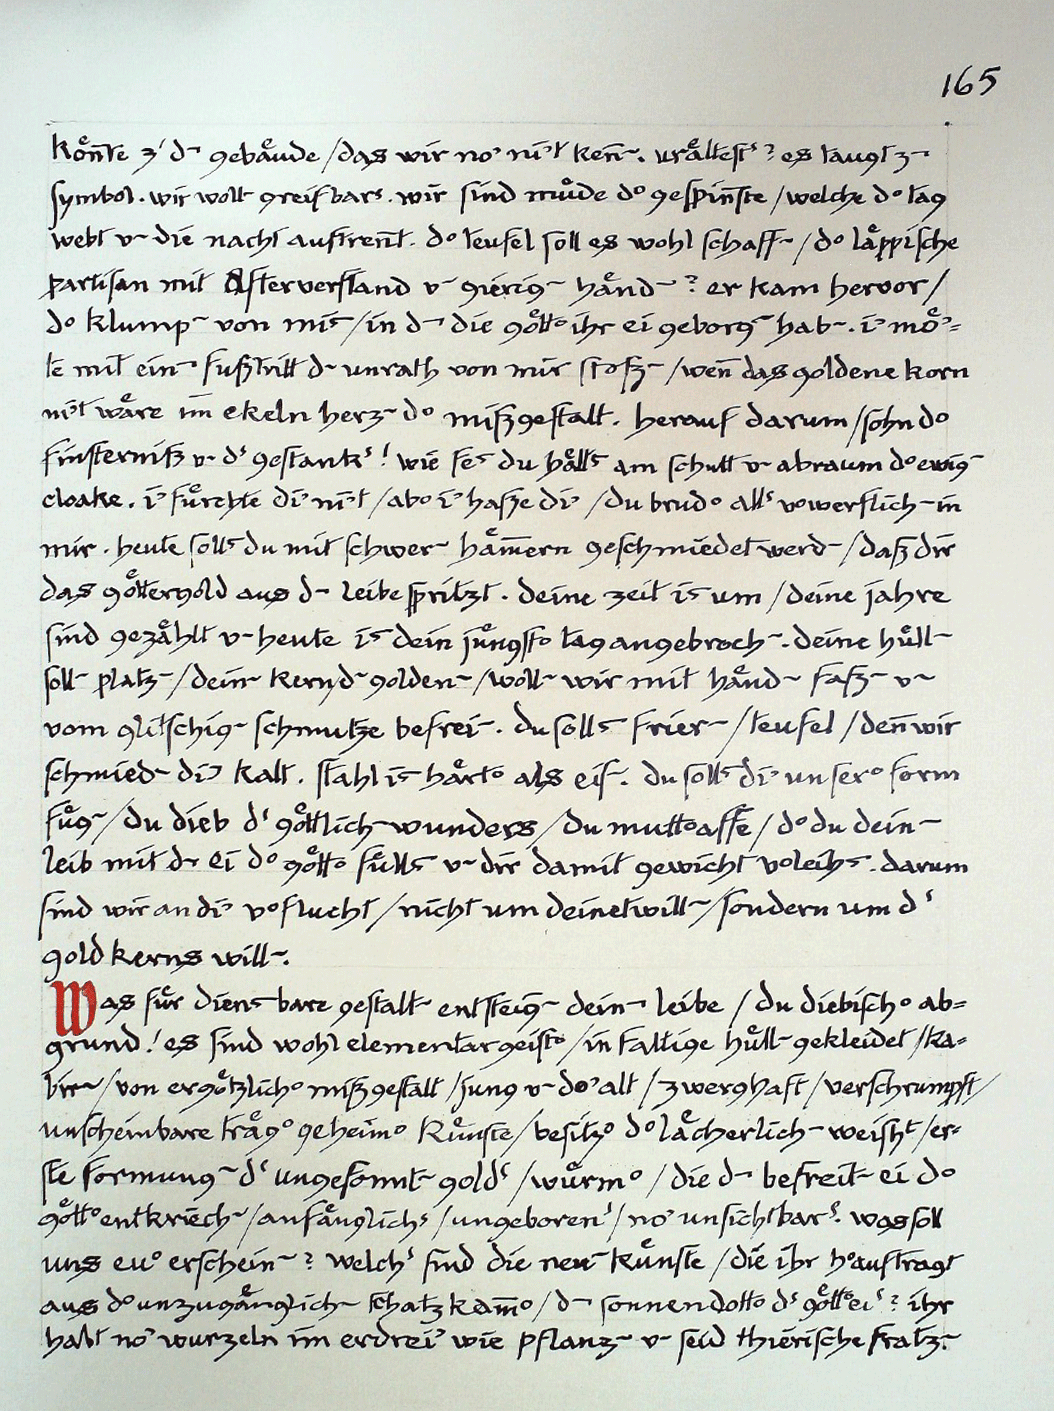 165
kön̄te z' d¬ gebäude / das wir no' ni't ken̄. urältesᵗˢ? es taugt z¬
symbol. wir wollt greifbarˢ. wir sind müde d° gespin̄ste / welche d° tag
webt u¬ die nacht auftren̄t. d° teufel soll es wohl schaff¬ / d° läppische
partisan mit Afterverstand u¬ gierig¬ händ¬? er kam hervor /
d° klump¬ von mis / in d¬ die gött° ihr ei geborg¬ hab¬. i' mö'=
te mit ein¬ fußtritt d¬ unrath von mir stoß¬ / wen̄ das goldene korn
ni't wäre im̄ ekeln herz¬ d° mißgestalt. herauf darum / sohn d°
finsterniß u¬ dˢ gestankˢ! wie fes du hälls am schutt u¬ abraum d° ewig¬
cloake. i' fürchte di' ni't / ab° i' hasse di' / du brud° allˢ v°werflich¬ in
mir. heute solls du mit schwer¬ häm̄ern geschmiedet werd¬ / daß dir
das göttergold aus d¬ leibe spritzt. deine zeit is um / deine jahre
sind gezählt u¬ heute is dein jüngst° tag angebroch¬. deine hüll¬
soll platz¬ / dein¬ kern / d¬ golden¬ / woll¬ wir mit händ¬ faß¬ u¬
vom glitschig¬ schmutze befrei¬. du solls frier¬ / teufel / den̄ wir
schmied¬ di' kalt. stahl is härt° als eis. du solls di' unser° form
füg¬ / du dieb dˢ göttlich¬ wunders / du mutt°affe / d° du dein¬
leib mit d¬ ei d° gött° fülls u¬ dir damit gewicht v°leihs. darum
sind wir an di' v°flucht / nicht um deinetwill¬ / sondern um dˢ
goldkerns will¬.
Was für diensbare gestalt¬ entsteig¬ dein¬ leibe / du diebisch° ab=
grund! es sind wohl elementargeist° / in faltige hüll¬ gekleidet / ka=
bir¬ / von ergötzlich° mißgestalt / jung u¬ do' alt / zwerghaft / verschrumpft /
unscheinbare träg° geheim° künste / besitz° d° lächerlich¬ weisht / er=
ste formung¬ dˢ ungeformt¬ goldˢ / würm° / die d¬ befreit¬ ei d°
gött° entkriech¬ / anfänglichˢ / ungeborenˢ / no' unsichtbarˢ. was soll
uns eu° erschein¬? welchˢ sind die neu¬ künste / die ihr h°auftragt
aus d° unzugänglich¬ schatzkam̄° / d¬ sonnendott° dˢ gött°eiˢ? ihr
habt no' wurzeln im erdrei' wie pflanz¬ u¬ seid thierische fratz¬.